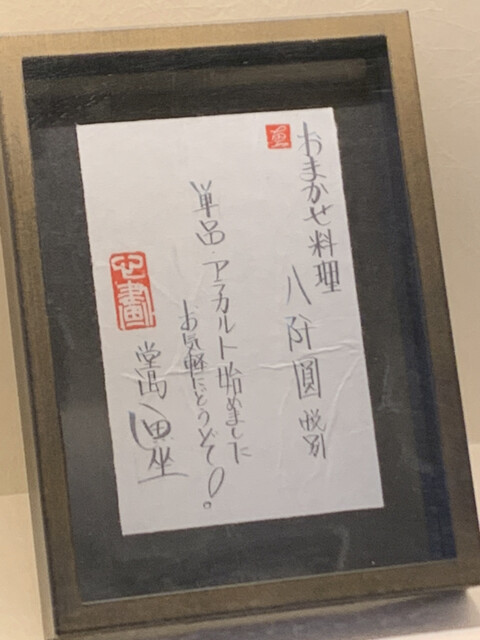 おまかせ料理
八阡圓 税別
単品・アラカルト始めました
お気軽にどうぞ!
心畫